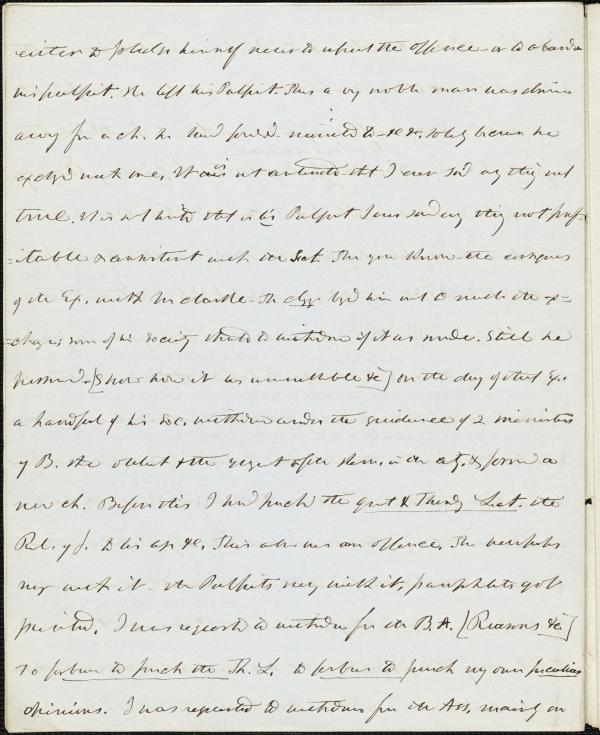 either to pledge himself never to repeat the offence – or to abandon
his pulpit. He left his Pulpit. Thus a very noble man was driven
away from a ch. he had &c &c, solely because he
exchgd with me. It was not contended – tht I ever sd any thing not
true. It is not tht in his Pulpit I ever said any thing not prof-
-itable & consistent with the Sect. Then you know – the
of the Ex. with Mr Clarke – The clergy him not to make the ex-
-change; some of his Society to withdraw if it was made. Still he
persevered. [Show how it was unsuitable &c] on the day of that Ex.
a handful of his Soc. withdrew under the guidance of 2 ministers
of B. the oldest & the in the city, & formed a
new ch. Before this I had preach the grt & Thursdy Lect. the
Rel. of J. & his age &c. This also was an offence. The newspaps
rang with it – the Pulpits rang with it, pamphlets got
printed. I was requestd to withdraw from the B.A. [Reasons &c]
To forbear to preach the Th. L. to forbear to preach my own peculiar
opinions. I was requested to withdraw from the Ass, mainly on